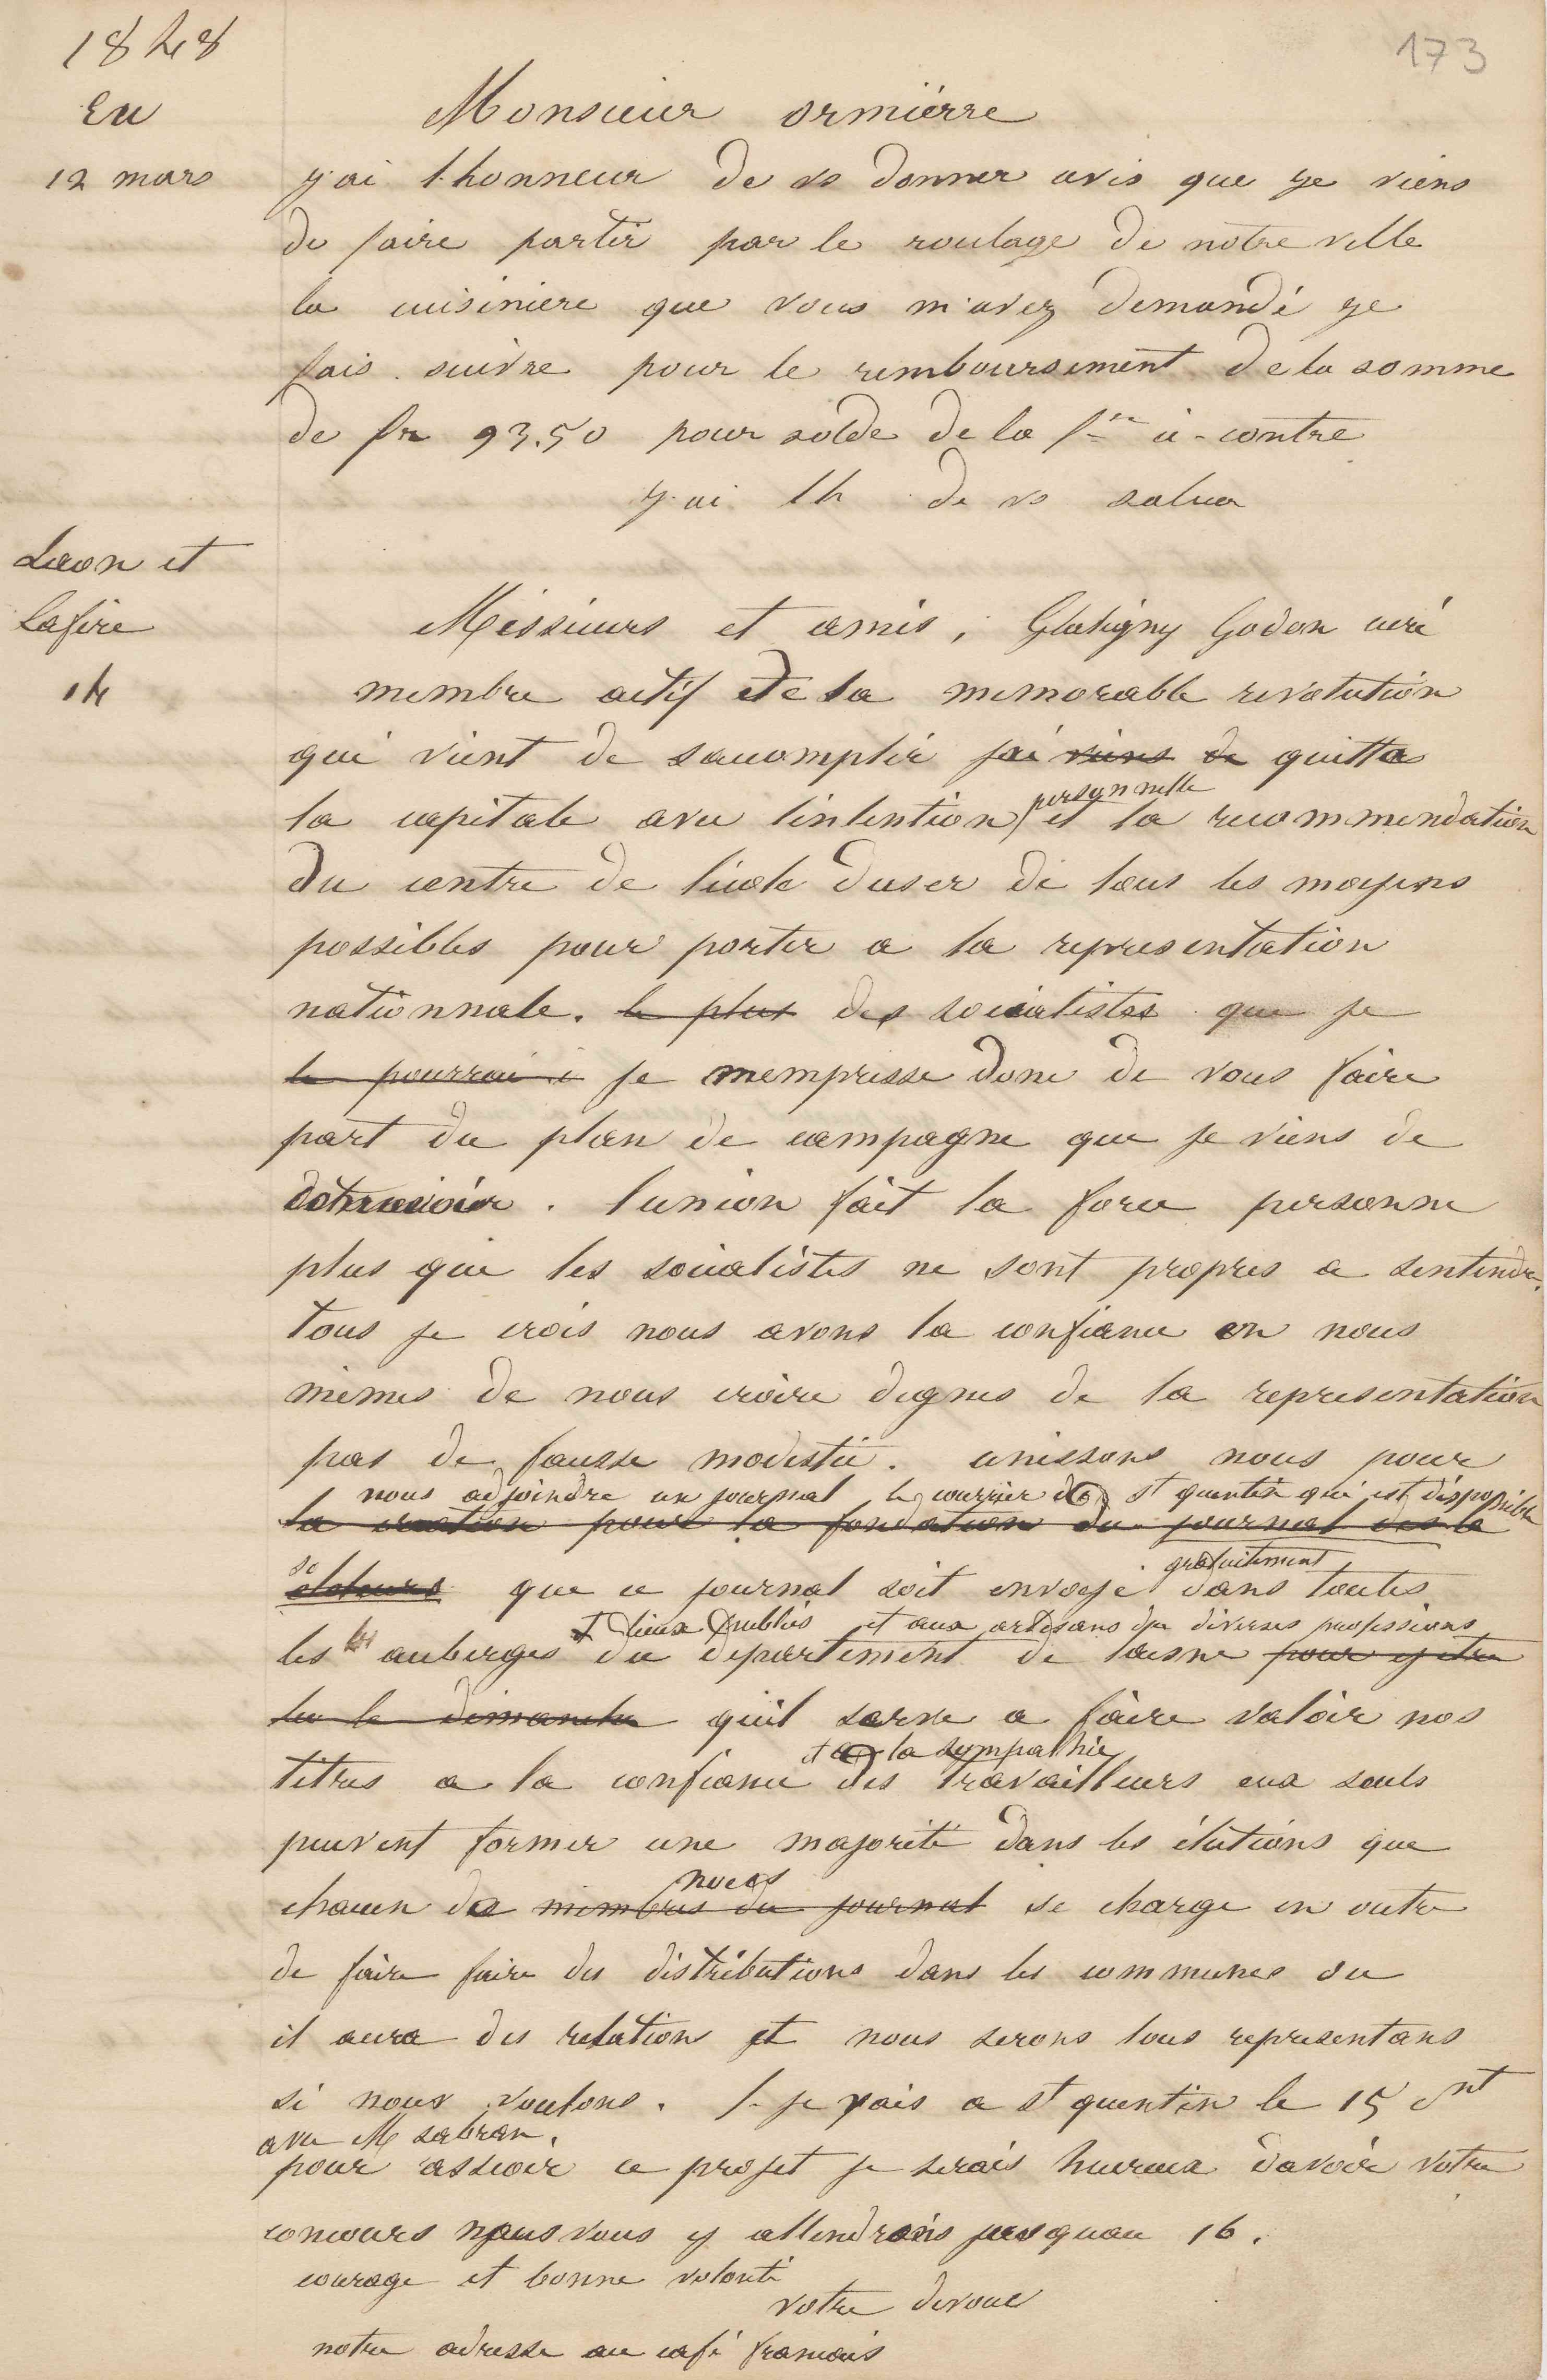 1848
173
Eu
Monsieur ormiérre
12 mars
j'ai l'honneur de vs donner avis que je viens
de faire partir par le roulage de notre ville
la cuisiniere que vous m'avez demandé je
fais suivre pour le remboursement de la somme
de fr 93.50 pour solde de la fre ci-contre
j'ai lh de vs saluer
Laon et
Lafere
14
Messieurs et amis,
membre actif de la memorable revolution
qui vient de saccomplir jai viens de quitter
la capitale avec lintention personnelle et la recommendation
du centre de lécole duser de tous les moyens
possibles pour porter a la representation
nationnale. le plus des socialistes que je
le pourrai je mempresse donc de vous faire
part du plan de campagne que je viens de
lunion fait la force personne
plus que les socialistes ne sont propres a sentendre.
tous je crois nous avons la confiance en nous
mêmes de nous croire dignes de la representation
pas de fausse modestie. unissons nous pour
nous adjoindre un journal le courrier de st quentin qui est disponible
la creation pour la fondation du journal des
so
electeurs que ce journal soit envoyé gratuitement dans toutes
les auberges et lieux publics et aux artisans de diverses professions
du departement de laisne pour y etre
lu le dimanche quil serve a faire valoir nos
titres a la confiance et a la sympathie des travailleurs eux seuls
peuvent former une majorité dans les élections que
chacun de nous membres du journal se charge en outre
de faire faire des distributions dans les communes ou
il aura des relation et nous serons tous representans
si nous voulons. je vais a st quentin le 15 ct
avec M sabran.
pour asseoir ce projet je serais heureux davoir votre
concours nous vous y attendrons jusquau 16.
courage et bonne volonté
votre devoué
notre adresse au café francais